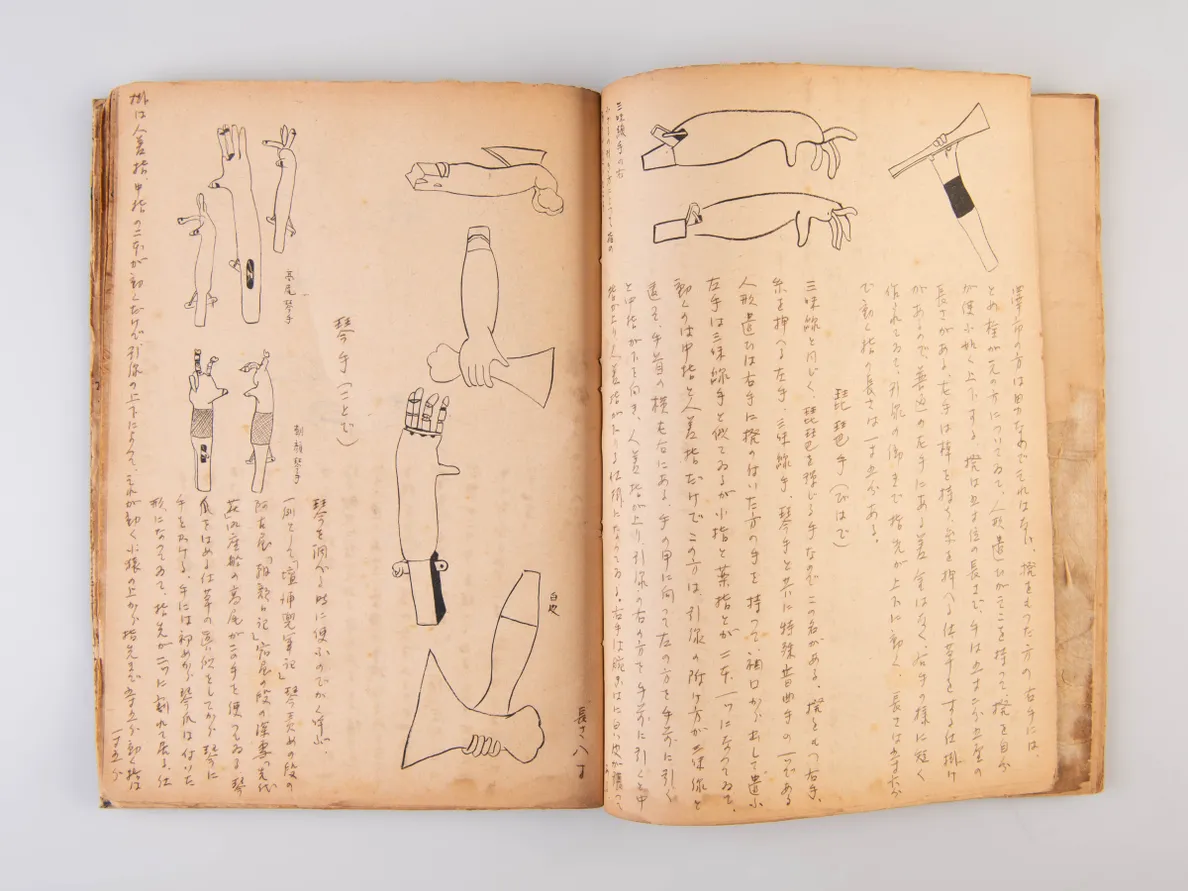 澤市の方は自力なのでそれはない、撥をもった方の右手には、
とめ栓が元の方についてゐて、人形遣ひがそこを持って、撥を自分
が使ふ如く上下する。撥は五寸位の長さで、手は
長さがある。左手は棹を持ち、糸を押へる仕草をする仕掛け
があるので、普通の左手にある差金はなく、右手の様に短く
作られてゐて、引線の働きで指先が上下に動く。長さは
で動く指の長さは一寸五分ある。
琵琶手(びはで)
三味線と同じく、琵琶を弾じる手なのでこの名がある。撥をもつ右手、
糸を押へる左手、三味線手、琴手と共に特殊音曲手の一つである
人形遣ひは右手に撥の付いた方の手を持って、袖口から出して遣ふ
左手は三味線手と似てゐるが小指と薬指とが二本一つになってゐて、
動くのは中指と人差指だけでこの方は、引線の附け方が三味線と
違って、手首の横左右にある。手の甲に向って左の方を手前に引く
と中指が下を向き、人差指が上り、引線の右の方を手前に引くと中
指が上り人差指が下りる仕掛になってゐる。右手は腕
三味線手の右
長さ八寸
白皮
琴手(ことで)
琴を調べる時に使ふのでかく呼ぶ。
一例として「壇浦兜軍記」琴責めの段の
阿古屋「朝顔日記」宿屋の段の深雪
高尾が二手を使ってゐる琴
爪をはめる仕草の真似をしてから琴に
手をかける、手には初めから琴爪は付いた
形になってゐて、指先が二つに割れて居る、仕
掛は人差指、中指の二本が動くだけで、引線の上下によって、それが動く
一寸五分
高尾琴手
朝顔琴手